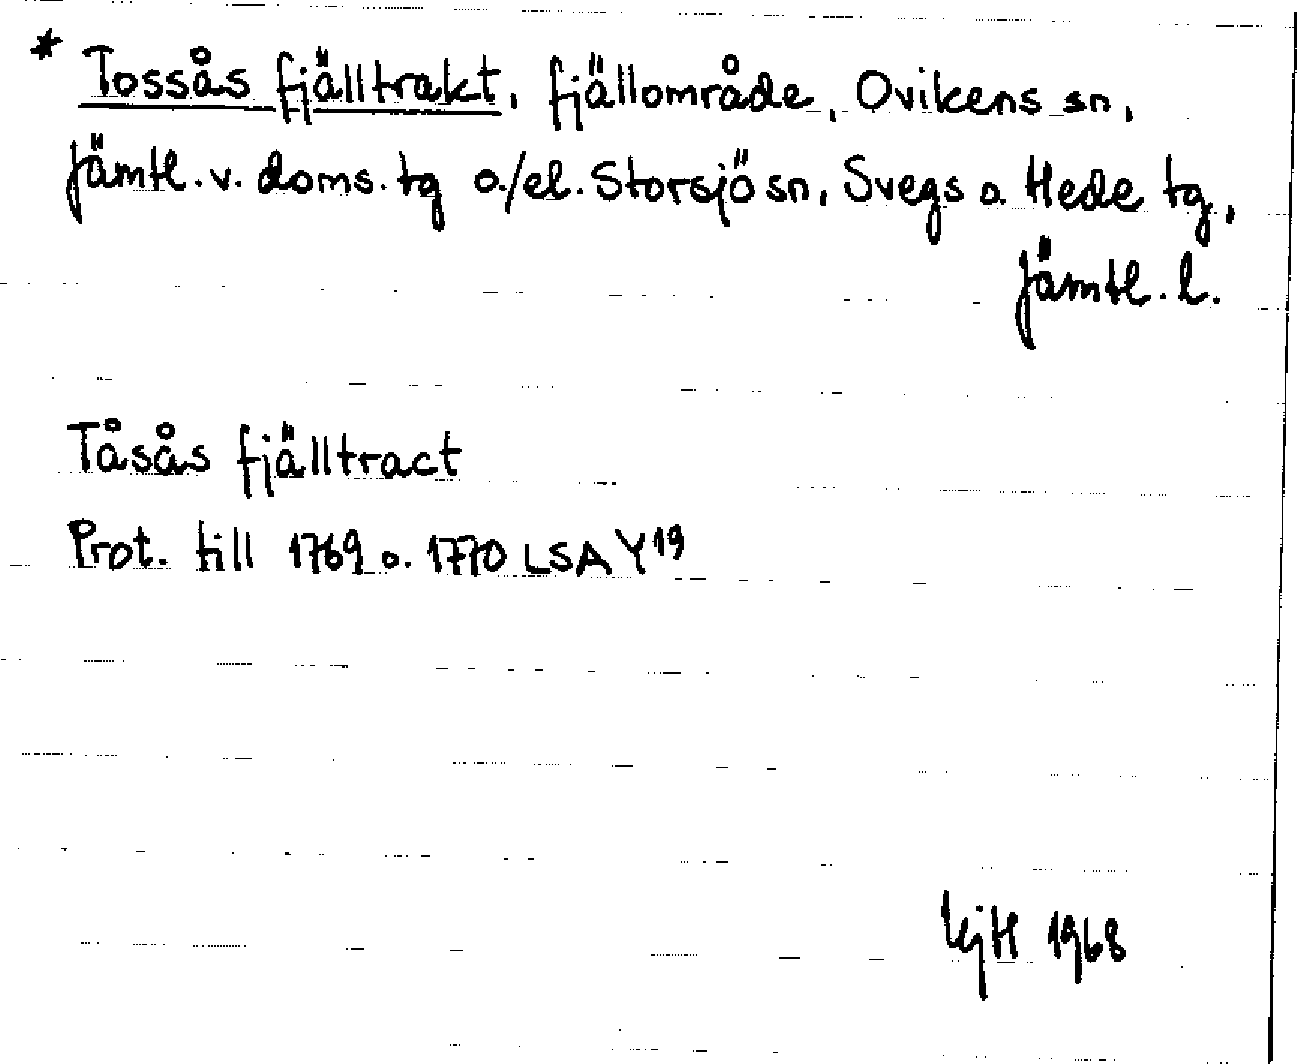 * Tossås fjälltrakt, fjällområde, Ovikens sn,
Jämtl. v. doms. tg o./el. Storsjö sn, Svegs o. Hede tg,
Jämtl. l.
Tåsås fjälltract
Prot. till 1769 o. 1770 LSA Y19
1968